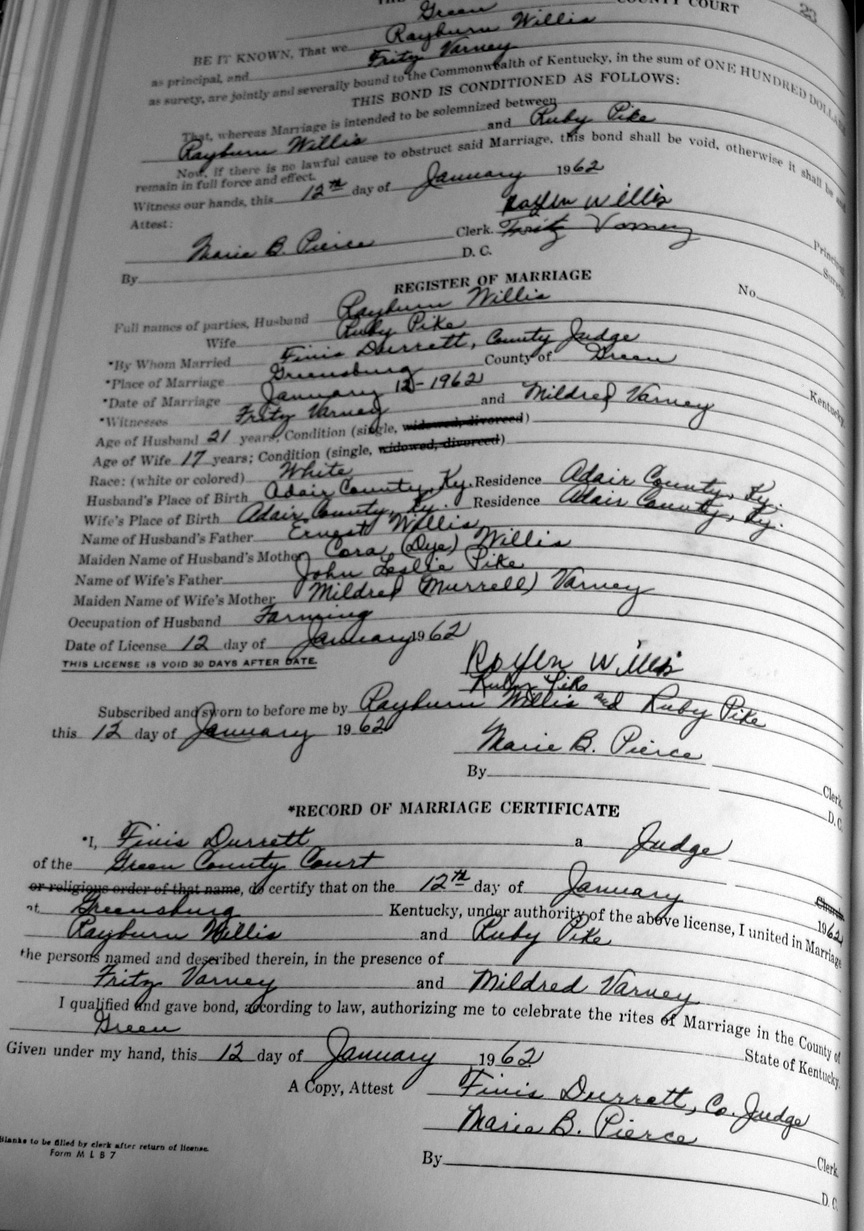 Green COUNTY COURT
23
Rayburn Willis
BE IT KNOWN, That we
Fritz Varney
as principal, and
as surety, are jointly and severally bound to the Commonwealth of Kentucky, in the sum of ONE HUNDRED DOLLARS
THIS BOND IS CONDITIONED AS FOLLOWS:
That, whereas Marriage is intended to be solemnized between
Rayburn Willis and Ruby Pike
Now, if there is no lawful cause to obstruct said Marriage, this bond shall be void, otherwise it shall be and
remain in full force and effect.
Witness our hands, this 12th day of January 1962
Attest: Rayburn Willis Principal
Marie B. Pierce Clerk. Fritz Varney Surety
By D. C.
REGISTER OF MARRIAGE
No.
Full names of parties, Husband Rayburn Willis
Wife Ruby Pike
*By Whom Married Finis Durrett, County Judge
*Place of Marriage Greensburg County of Green Kentucky
*Date of Marriage January 12-1962
*Witnesses Fritz Varney and Mildred Varney
Age of Husband 21 years; Condition (single, widowed, divorced)
Age of Wife 17 years; Condition (single, widowed, divorced)
Race: (white or colored) White
Husband's Place of Birth Adair County, Ky. Residence Adair County, Ky.
Wife's Place of Birth Adair County, Ky. Residence Adair County, Ky.
Name of Husband's Father Ernest Willis
Maiden Name of Husband's Mother Cora (Dye) Willis
Name of Wife's Father John Leslie Pike
Maiden Name of Wife's Mother Mildred (Murrell) Varney
Occupation of Husband Farming
Date of License 12 day of January 1962
THIS LICENSE IS VOID 30 DAYS AFTER DATE.
Willis
Ruby Pike
Subscribed and sworn to before me by Rayburn Willis and Ruby Pike
this 12 day of January 1962
Marie B. Pierce Clerk.
By D. C.
*RECORD OF MARRIAGE CERTIFICATE
*I, Finis Durrett a Judge
of the Green County Court Church
or religious order of that name, do certify that on the 12th day of January 1962
at Greensburg Kentucky, under authority of the above license, I united in Marriage
Rayburn Willis and Ruby Pike
the persons named and described therein, in the presence of
Fritz Varney and Mildred Varney
I qualified and gave bond, according to law, authorizing me to celebrate the rites of Marriage in the County of
Green State of Kentucky.
Given under my hand, this 12 day of January 1962
A Copy, Attest Finis Durrett, Co. Judge
Marie B. Pierce Clerk
By D. C.
Blanks to be filled by clerk after return of license.
Form M L B 7